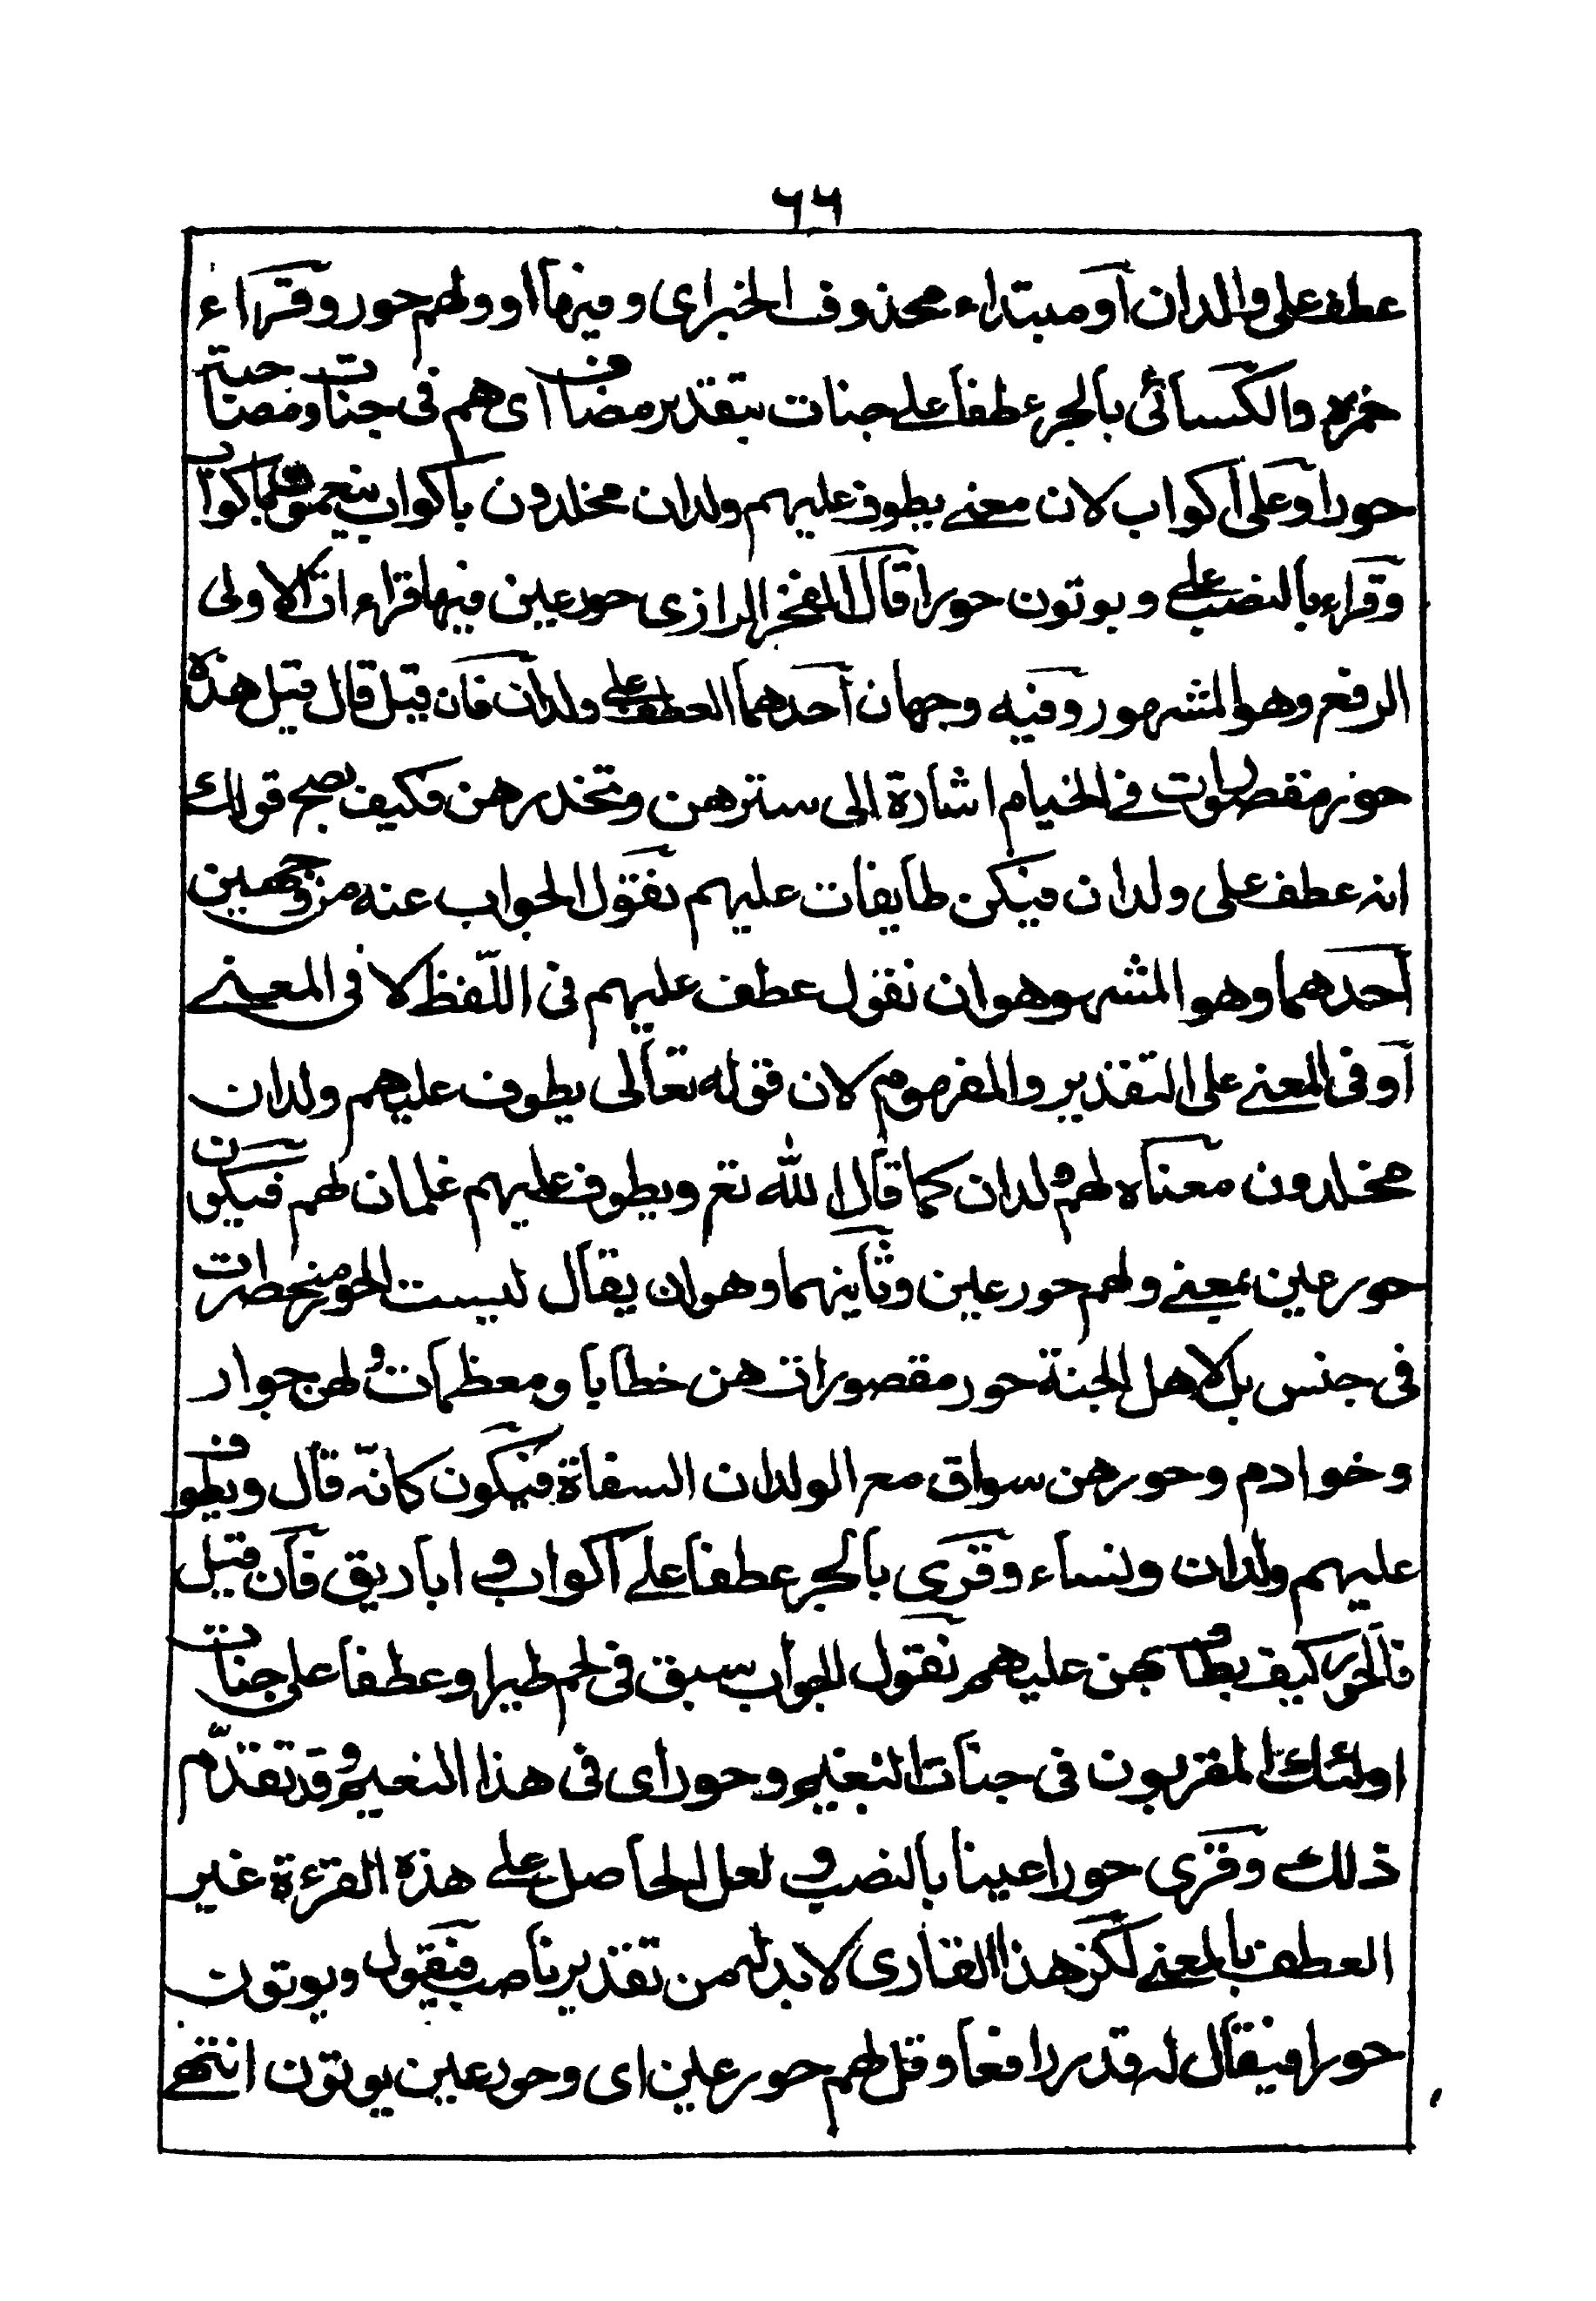 ٦٦
عطف على ولدان او مبتداء محذوف الخبر اى وفيها او ولهم حور وقراء
حمزه والكسائى بالجر عطفا على جنات بتقدير مضاف اى هم فى جنات ومصاحبة
حورا وعلى اكواب لان معنى يطوف عليهم ولدان مخلدون باكواب ينعمون باكواب
وقراء بالنصب على ويوتون حورا قال الفخر الرازى حور عين فيها قراءات الاولى
الرفع وهو المشهور وفيه وجهان احدهما العطف على ولدان فان قيل قال قبل هذه
حور مقصورات فى الخيام اشارة الى سترهن وتخدرهن فكيف يصح قولك
انه عطف على ولدان فيكن طايفات عليهم نقول الجواب عنه من وجهين
احدهما وهو المشهور هو ان نقول عطف عليهم فى اللّفظ لا فى المعنى
او فى المعنى على التقدير والمفهوم لان قوله تعالى يطوف عليهم ولدان
مخلدون معناه لهم ولدان كما قال الله تع ويطوف عليهم غلمان لهم فيكون
حور عين بمعنى ولهم حور عين وثانيهما وهو ان يقال ليست الحور منحصرات
فى جنس بل لاهل الجنة حور مقصورات هن خطايا ومعظمات ولهن جوار
وخوادم وحورهن سواق مع الولدان السقاة فيكون كانّه قال ويطوف
عليهم ولدان ونساء وقرى بالجر عطفا على اكواب و اباريق فان قيل
فالحور كيف يطاف بهن عليهم نقول الجواب سبق فى لحم طير او عطفا على جنات
اولئك المقربون فى جنات النعيم وحور اى فى هذا النعيم وقد تقدّم
ذلك وقرى حورا عينا بالنصب و لعل الحاصل على هذه القرءة غير
العطف بالمعنى لكن هذا القارى لا بد له من تقدير ناصب فيقول ويوتون
حورا فيقال له قدر رافعا وقل لهم حور عين اى وحور عين يوتون انتهى